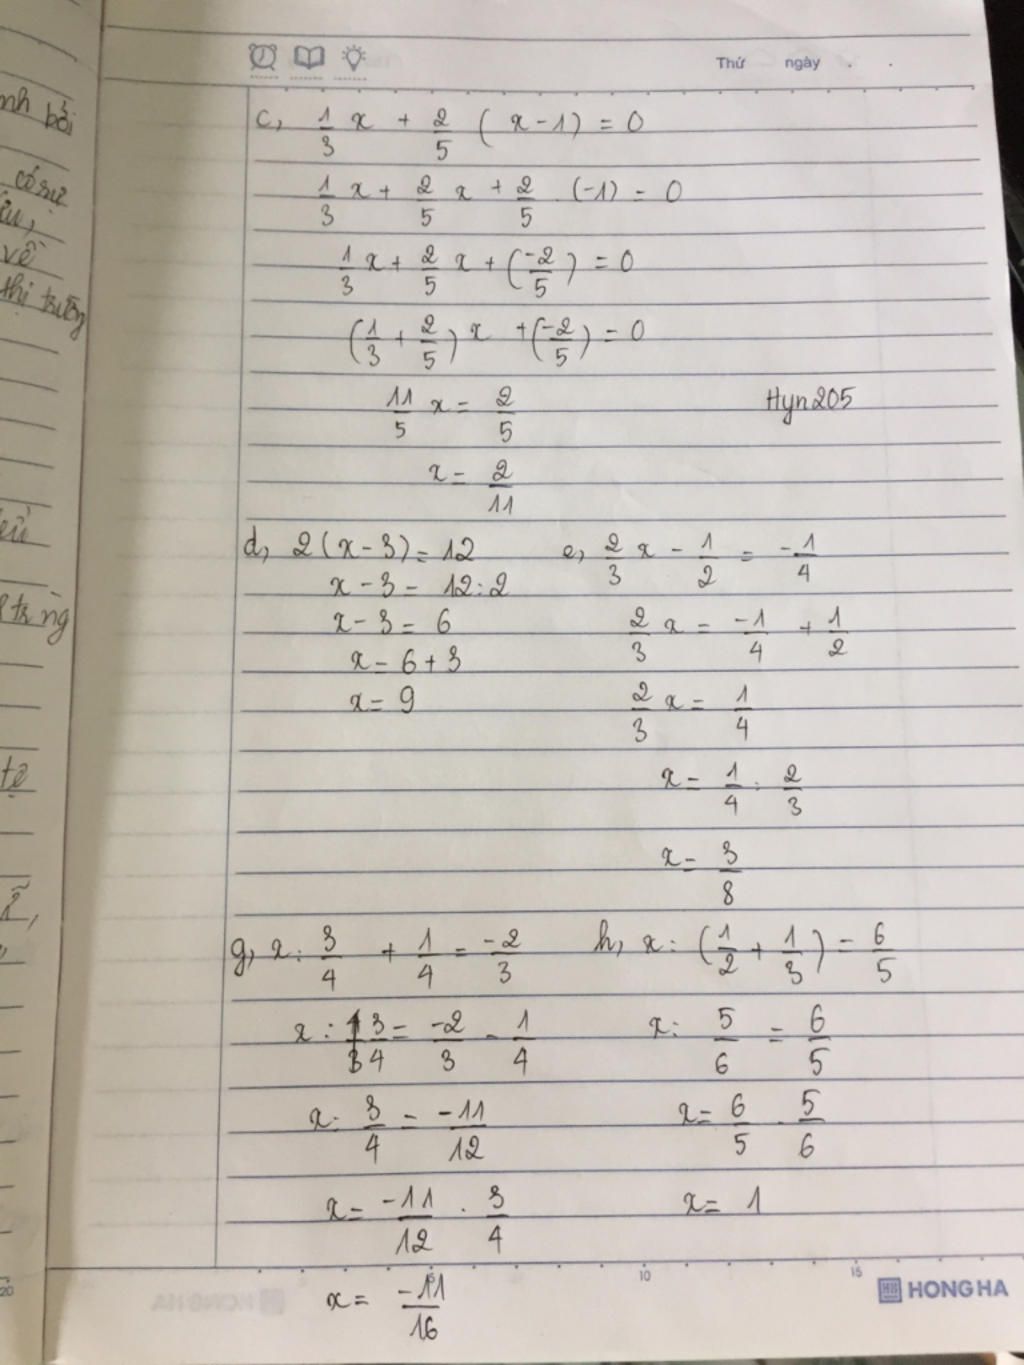 nh bởi
có sự
về
thị trường
tế
Thứ ngày
c, 1/3 x + 2/5 ( x - 1) = 0
1/3 x + 2/5 x + 2/5 . (-1) = 0
1/3 x + 2/5 x + (-2/5) = 0
(1/3 + 2/5) x + (-2/5) = 0
11/5 x = 2/5
Hyn205
x = 2/11
d, 2(x - 3) = 12
x - 3 = 12 : 2
x - 3 = 6
x = 6 + 3
x = 9
e, 2/3 x - 1/2 = -1/4
2/3 x = -1/4 + 1/2
2/3 x = 1/4
x = 1/4 : 2/3
x = 3/8
g, x : 3/4 + 1/4 = -2/3
x : 3/4 = -2/3 - 1/4
x : 3/4 = -11/12
x = -11/12 . 3/4
x = -11/16
h, x : (1/2 + 1/3) = 6/5
x : 5/6 = 6/5
x = 6/5 . 5/6
x = 1
20
5 10 15
HONG HA